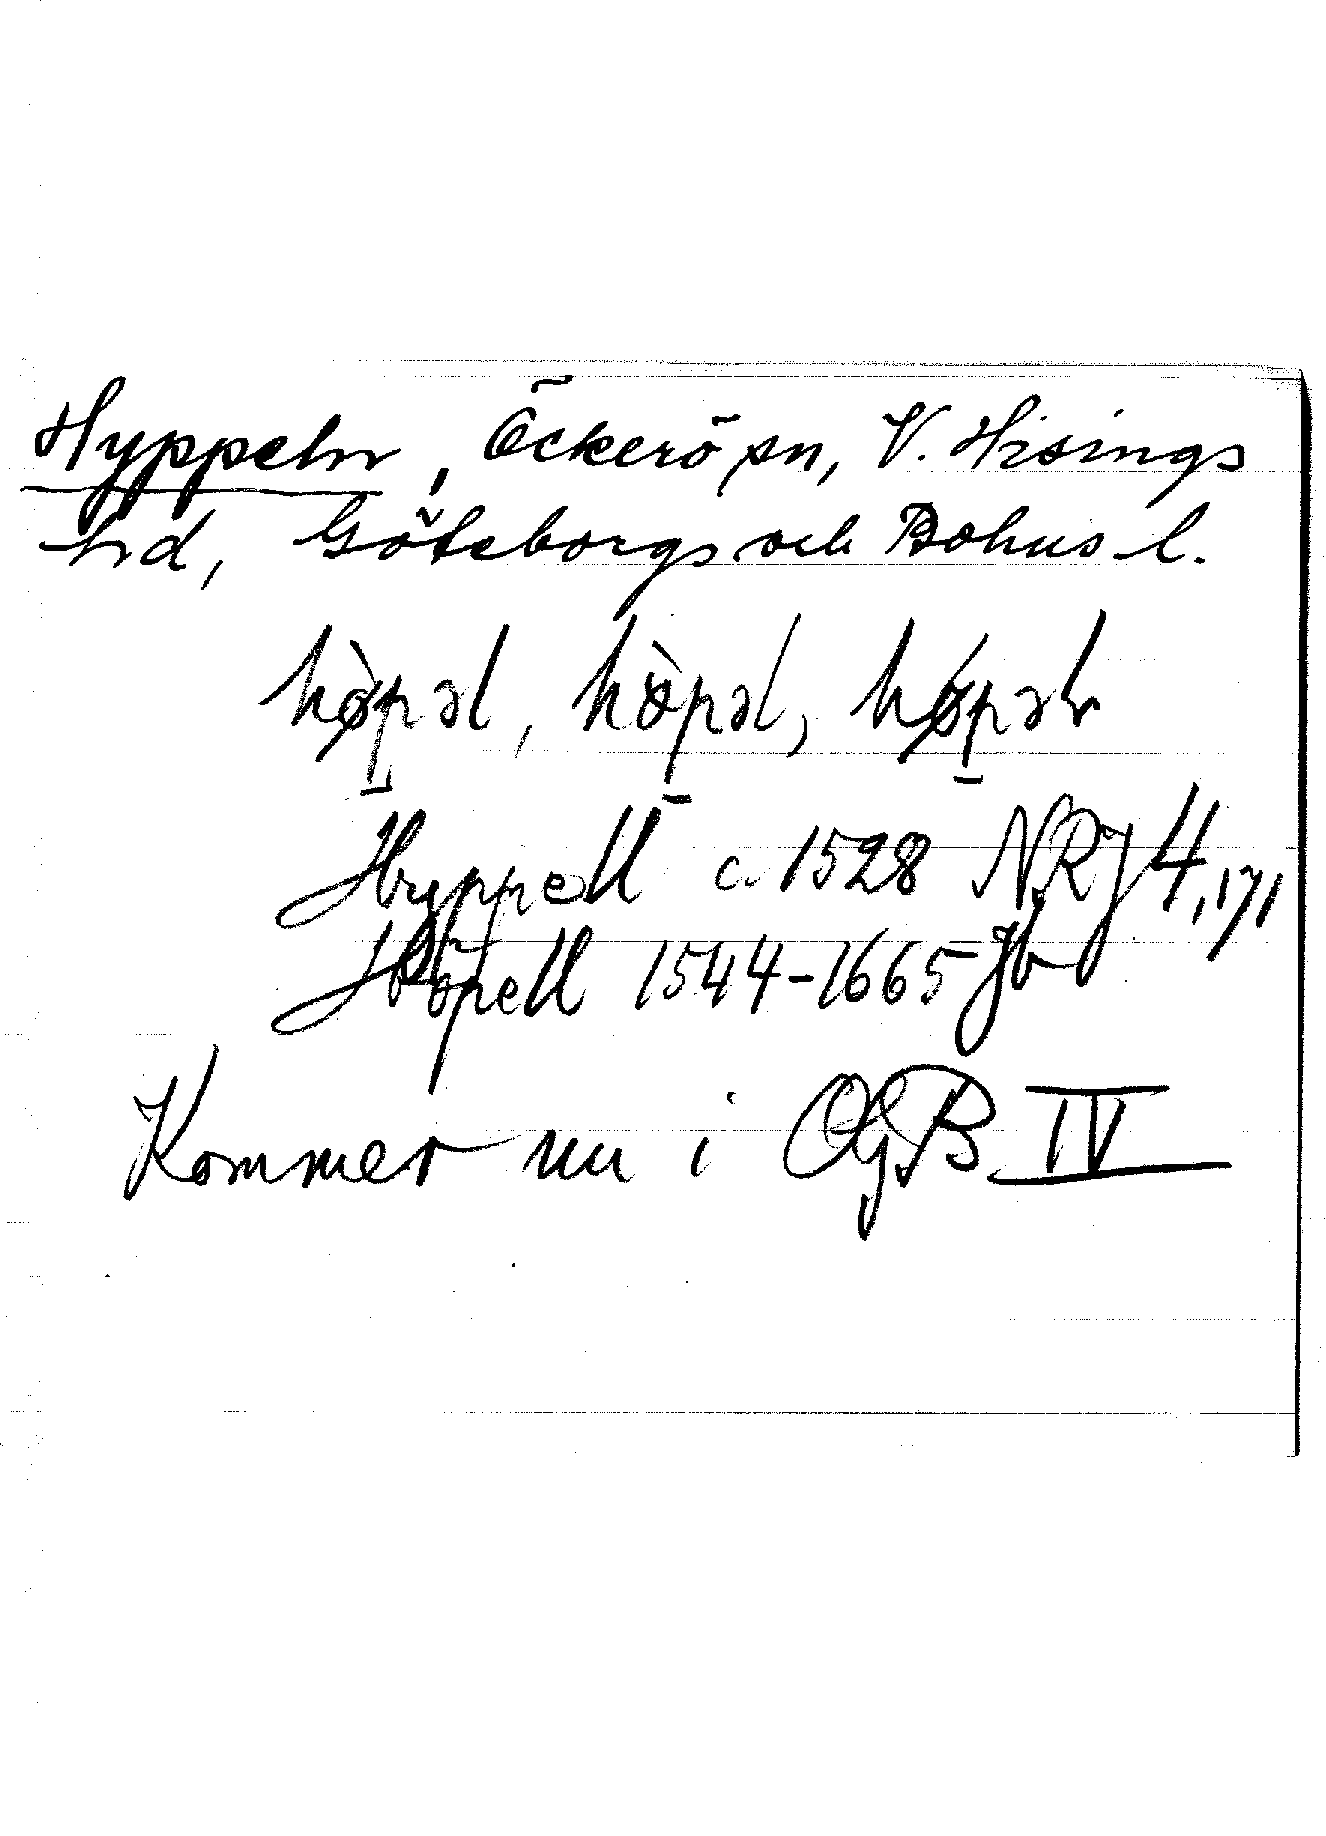 Hyppeln, Öckerö sn, V. Hisings
hd, Göteborgs och Bohus l.
hø̀pəl, hö̀pəl, høpəln
Hyppell c 1528 NRJ 4,171
Höpell 1544-1665 Jb
Kommer nu i OGB IV